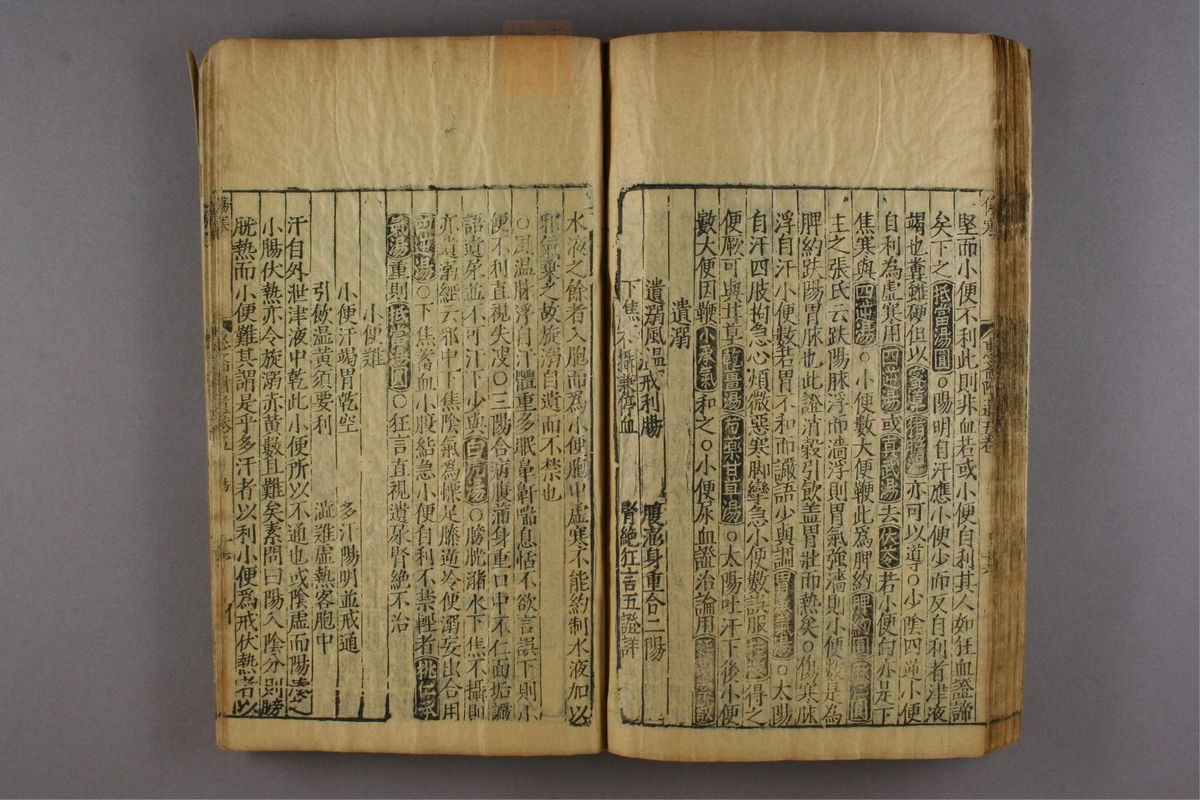 堅而小便不利此則非血若或小便自利其人如狂血證諦
矣下之抵當湯圓○陽明自汗應小便少而反自利者津液
竭也糞雖硬但以蜜導猪膽亦可以導○少陰四逆小便
自利為虛寒用四逆湯或真武湯去茯苓若小便白亦是下
焦寒與四逆湯○小便數大便鞕此為脾約脾約圓麻仁圓
主之張氏云趺陽脉浮而濇浮則胃氣強濇則小便數是為
脾約趺陽胃脉也此證消穀引飲盖胃壯而熱矣○傷寒脉
浮自汗小便數若胃不和而譫語少與調胃承氣湯○太陽
自汗四肢拘急心煩微惡寒脚攣急小便數誤服桂枝得之
便厥可與甘草乾薑湯芍藥甘草湯○太陽吐汗下後小便
數大便因鞕小承氣和之○小便尿血證治論用
遺溺
遺溺風溫戒利腸 腹滿身重合三陽
下焦不攝兼停血 腎絶狂言五證詳
水液之餘者入胞而為小便胞中虛寒不能約制水液加以
邪氣乗之故旋溺自遺而不禁也
○風温脉浮自汗體重多眠鼻鼾喘息怙不欲言誤下則小
便不利直視失溲○三陽合病腹滿身重口中不仁面垢譫
語遺尿並不可汗下少與白虎湯○膀胱瀦水下焦不攝則
亦遺溺經云邪中下焦陰氣為慄足膝逆冷便溺妄出合用
四逆湯○下焦蓄血小腹結急小便自利不禁輕者桃仁承
氣湯重則抵當湯圓○狂言直視遺尿腎絶不治
小便難
小便汗竭胃乾空 多汗陽明並戒通
引飲温黄須要利 澁難虛熱客胞中
汗自外泄津液中乾此小便所以不通也或陰虛而陽湊之
小腸伏熱亦令旋溺赤黄數且難矣素問曰陽入陰分則膀
胱熱而小便難其謂是乎多汗者以利小便為戒伏熱者以